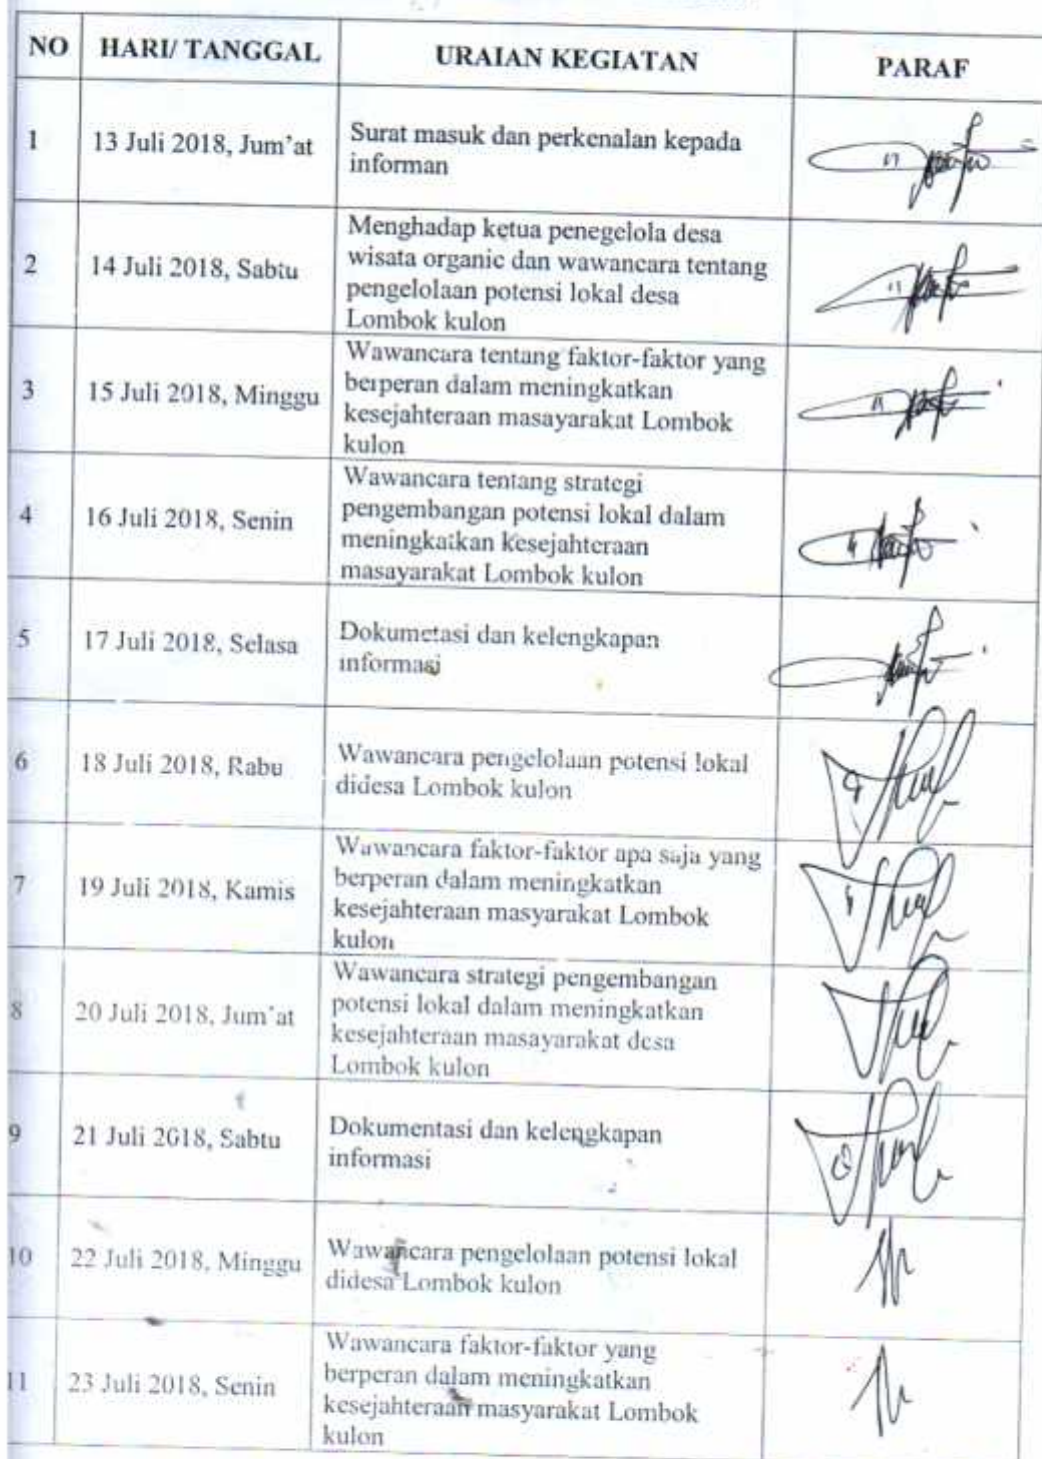 NO HARI/ TANGGAL URAIAN KEGIATAN PARAF
1 13 Juli 2018, Jum'at Surat masuk dan perkenalan kepada
informan
2 14 Juli 2018, Sabtu Menghadap ketua penegelola desa
wisata organic dan wawancara tentang
pengelolaan potensi lokal desa
Lombok kulon
3 15 Juli 2018, Minggu Wawancara tentang faktor-faktor yang
berperan dalam meningkatkan
kesejahteraan masayarakat Lombok
kulon
4 16 Juli 2018, Senin Wawancara tentang strategi
pengembangan potensi lokal dalam
meningkatkan kesejahteraan
masayarakat Lombok kulon
5 17 Juli 2018, Selasa Dokumetasi dan kelengkapan
informasi
6 18 Juli 2018, Rabu Wawancara pengelolaan potensi lokal
didesa Lombok kulon
7 19 Juli 2018, Kamis Wawancara faktor-faktor apa saja yang
berperan dalam meningkatkan
kesejahteraan masyarakat Lombok
kulon
8 20 Juli 2018, Jum'at Wawancara strategi pengembangan
potensi lokal dalam meningkatkan
kesejahteraan masayarakat desa
Lombok kulon
9 21 Juli 2018, Sabtu Dokumentasi dan kelengkapan
informasi
10 22 Juli 2018, Minggu Wawancara pengelolaan potensi lokal
didesa Lombok kulon
11 23 Juli 2018, Senin Wawancara faktor-faktor yang
berperan dalam meningkatkan
kesejahteraan masyarakat Lombok
kulon